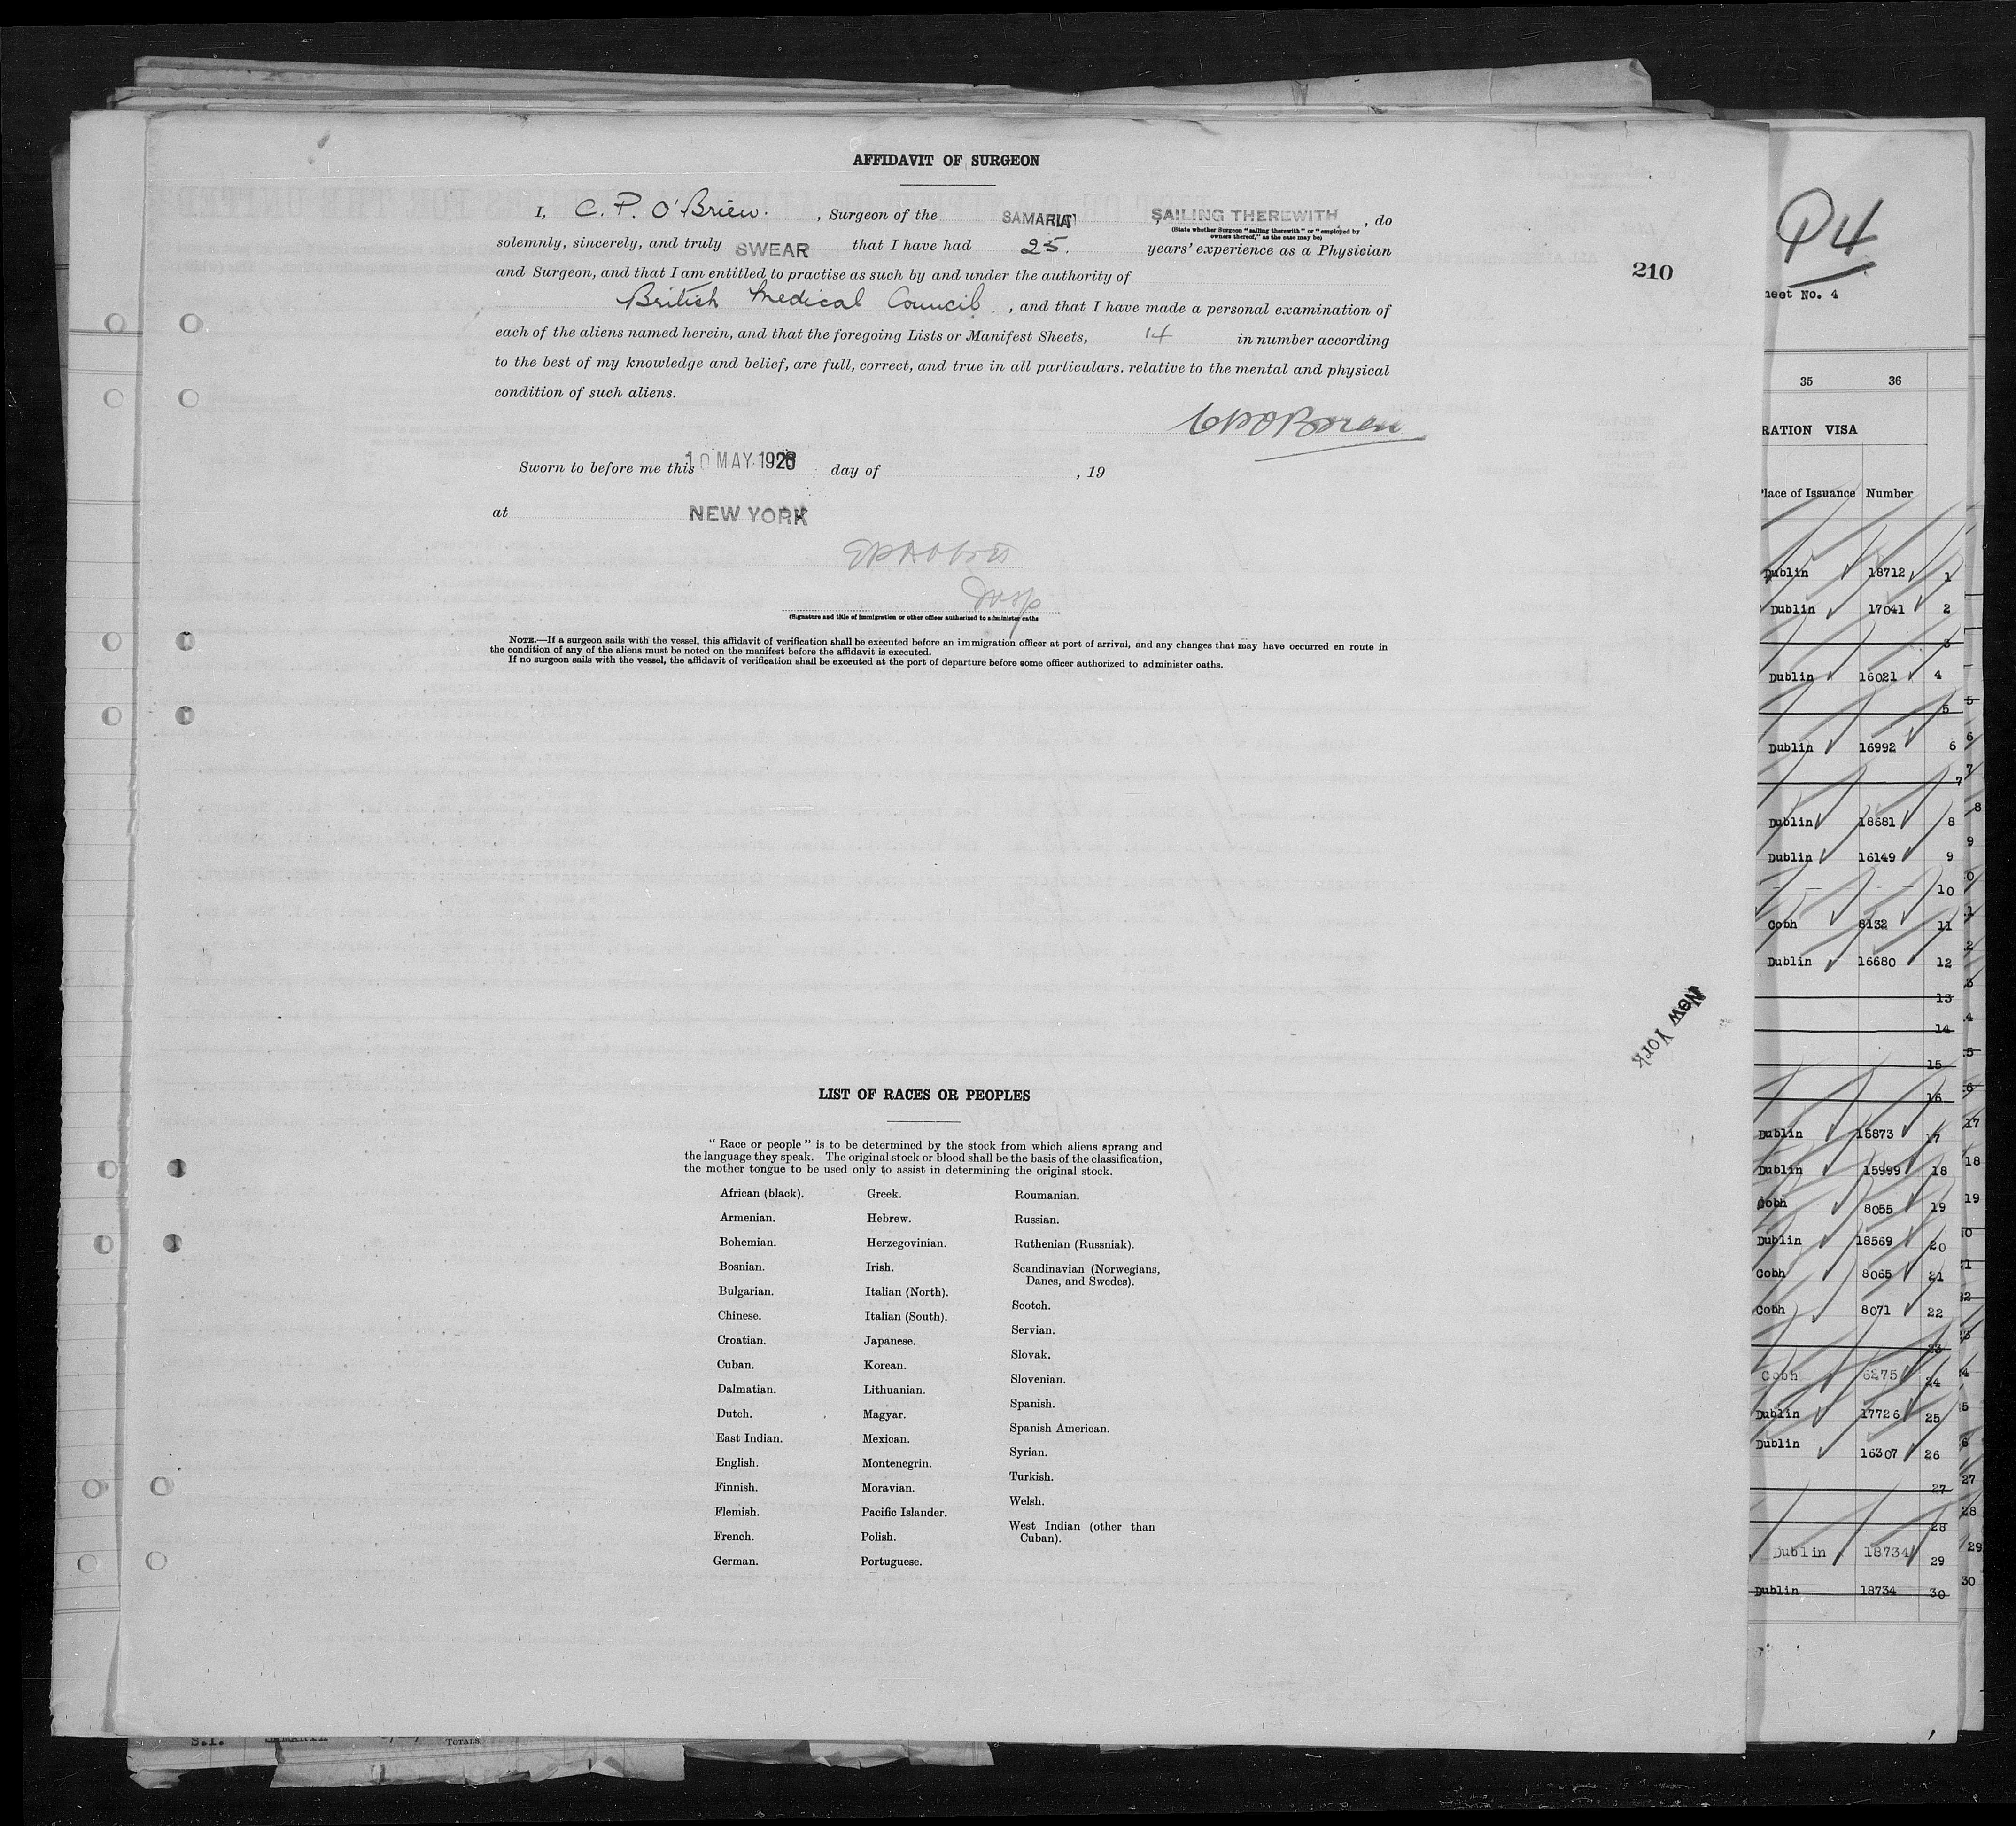 AFFIDAVIT OF SURGEON
I, C. P. O'Brien. , Surgeon of the SAMARIA SAILING THEREWITH , do
(State whether Surgeon "sailing therewith" or "employed by
owners thereof," as the case may be)
solemnly, sincerely, and truly SWEAR that I have had 25. years' experience as a Physician
and Surgeon, and that I am entitled to practise as such by and under the authority of
British Medical Council , and that I have made a personal examination of
each of the aliens named herein, and that the foregoing Lists or Manifest Sheets, 14 in number according
to the best of my knowledge and belief, are full, correct, and true in all particulars. relative to the mental and physical
condition of such aliens.
C P O'Brien
Sworn to before me this 10 MAY 1928 day of , 19
at NEW YORK
Insp
(Signature and title of immigration or other officer authorized to administer oaths
NOTE.—If a surgeon sails with the vessel, this affidavit of verification shall be executed before an immigration officer at port of arrival, and any changes that may have occurred en route in
the condition of any of the aliens must be noted on the manifest before the affidavit is executed.
If no surgeon sails with the vessel, the affidavit of verification shall be executed at the port of departure before some officer authorized to administer oaths.
210
New York
LIST OF RACES OR PEOPLES
"Race or people" is to be determined by the stock from which aliens sprang and
the language they speak. The original stock or blood shall be the basis of the classification,
the mother tongue to be used only to assist in determining the original stock.
African (black).
Armenian.
Bohemian.
Bosnian.
Bulgarian.
Chinese.
Croatian.
Cuban.
Dalmatian.
Dutch.
East Indian.
English.
Finnish.
Flemish.
French.
German.
Greek.
Hebrew.
Herzegovinian.
Irish.
Italian (North).
Italian (South).
Japanese.
Korean.
Lithuanian.
Magyar.
Mexican.
Montenegrin.
Moravian.
Pacific Islander.
Polish.
Portuguese.
Roumanian.
Russian.
Ruthenian (Russniak).
Scandinavian (Norwegians,
Danes, and Swedes).
Scotch.
Servian.
Slovak.
Slovenian.
Spanish.
Spanish American.
Syrian.
Turkish.
Welsh.
West Indian (other than
Cuban).
P4
heet No. 4
35 36
RATION VISA
lace of Issuance Number
Dublin 18712 1
Dublin 17041 2
3
Dublin 16021 4
5
Dublin 16992 6
7
Dublin 18681 8
Dublin 16149 9
10
Cobh 8132 11
Dublin 16680 12
13
14
15
16
Dublin 15873 17
Dublin 15999 18
Cobh 8055 19
Dublin 18569 20
Cobh 8065 21
Cobh 8071 22
23
Cobh 6275 24
Dublin 17726 25
Dublin 16307 26
27
28
Dublin 18734 29
Dublin 18734 30
S.I. TOTALS